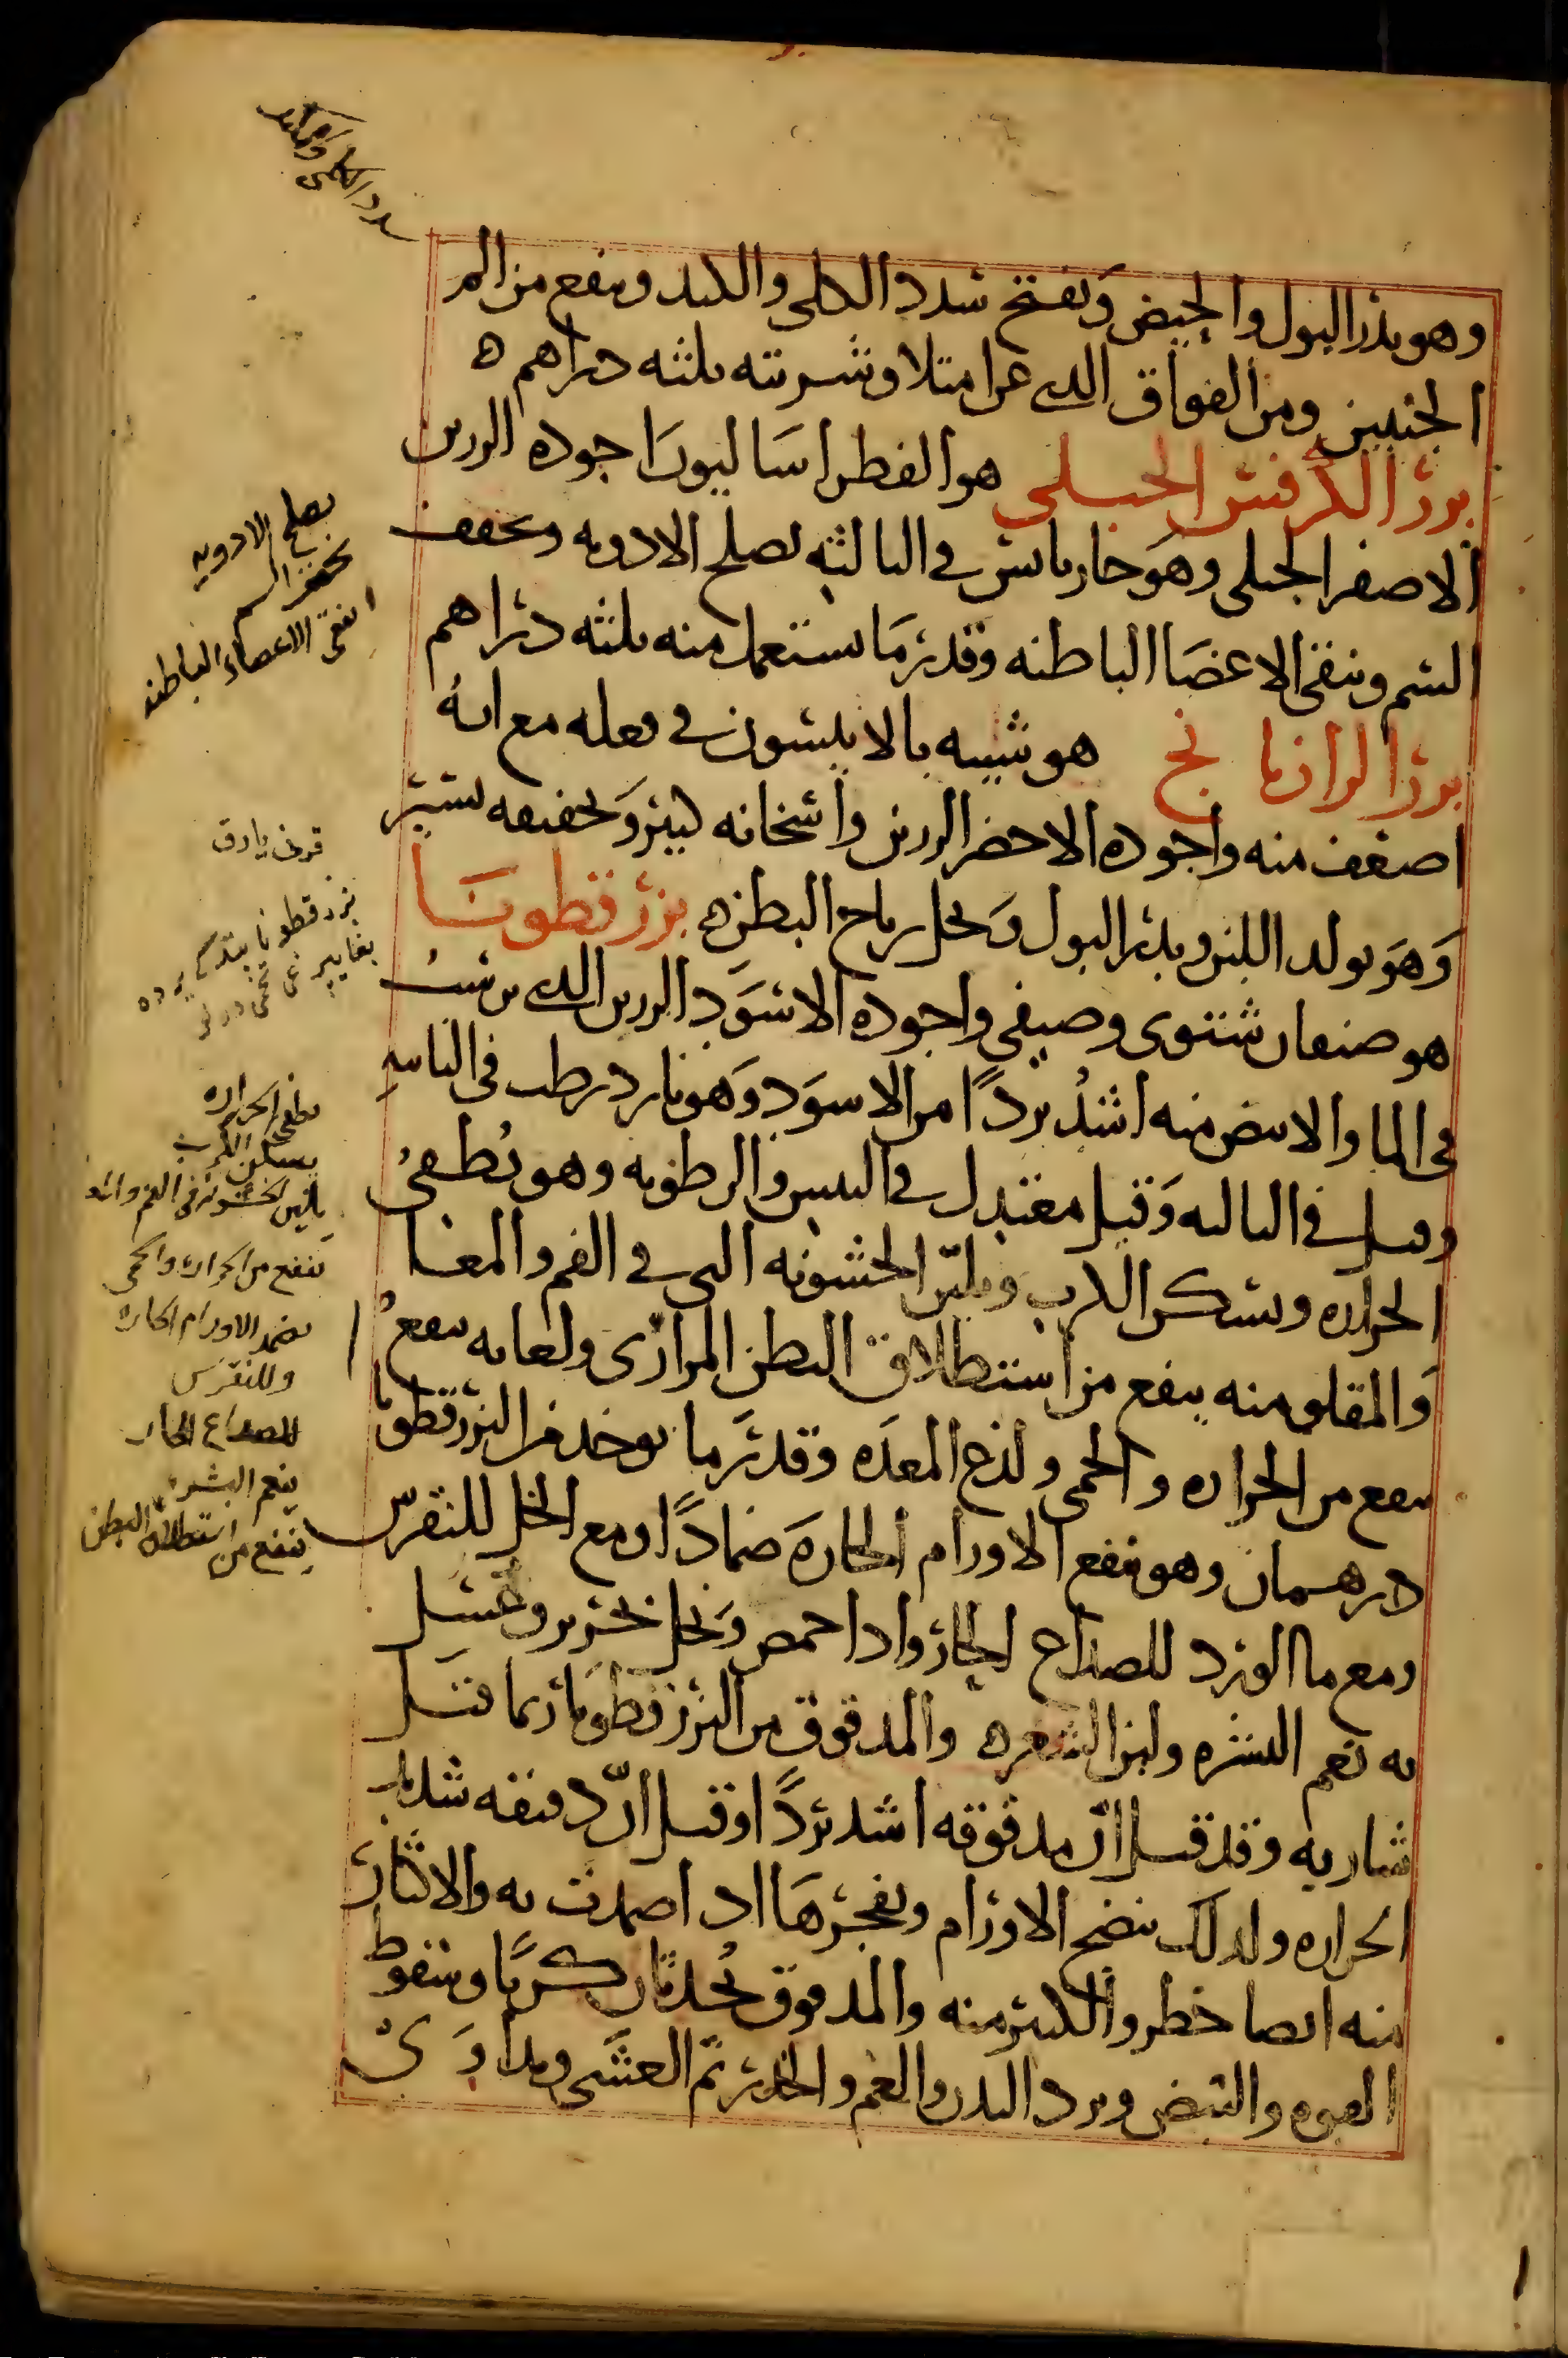 وهو يدر البول والحيض ويفتح سدد الكلى والكبد وينفع من الم
الجنبين ومن الفواق الذى عن امتلا وشربته ثلثه دراهم ه
بزر الكرفس الجبلى هو الفطراساليون اجوده الرزين
الاصفر الجبلى وهو حار يابس فى الثالثه يصلح الادويه ويخفف
السم وينقى الاعضا الباطنه وقدر ما يستعمل منه ثلثه دراهم
بزر الرازيانج هو شبيه بالانيسون فى فعله مع انه
اضعف منه واجوده الاخضر الرزين واسخانه كبير وتجفيفه يسير
وهو يولد اللبن ويدر البول ويحل رياح البطن ه بزر قطونا
هو صنفان شتوى وصيفى واجوده الاسود الرزين الذى يرسب
فى الما والابيض منه اشد بردًا من الاسود وهو بارد رطب فى الثانيه
وقيل فى الثالثه وقيل معتدل فى اليبس والرطوبه وهو يطفى
الحراره ويسكن الكرب ويلين الخشونه التى فى الفم والمعا
والمقلو منه ينفع من استطلاق البطن المرارى ولعابه ينفع
ينفع من الحراره والحمى ولذع المعده وقدر ما يوخذ من البزرقطونا
درهمان وهو ينفع الاورام الحاره ضمادًا ومع الخل للنقرس
ومع ما الورد للصداع الحار واذا حمص ونخل بحرير وغسل
به نعم البشره ولين الشعر ه والمدقوق من البزرقطونا ربما قتل
شاربه وقد قيل ان مدقوقه اشد بردًا وقيل ان دقيقه شديد
الحراره ولذلك ينضج الاورام ويفجرها اذا ضمدت به والاكثار
منه ايضا خطر والكثير منه والمدقوق يحدثان كربًا وسقوط
القوه والنبض وبرد البدن والغم والخدر ثم الغشى ويداوى
سدد الكلى والكبد
يصلح الادويه
يخفف السم
ينقى الاعضاء الباطنه
قرنى يارق
بزر قطونا
يطفى الحراره
يسكن الكرب
يلين الخشونه فى الفم والمعا
ينفع من الحراره والحمى
يضمد الاورام الحاره
وللنقرس
للصداع الحار
ينعم البشره
ينفع من استطلاق البطن